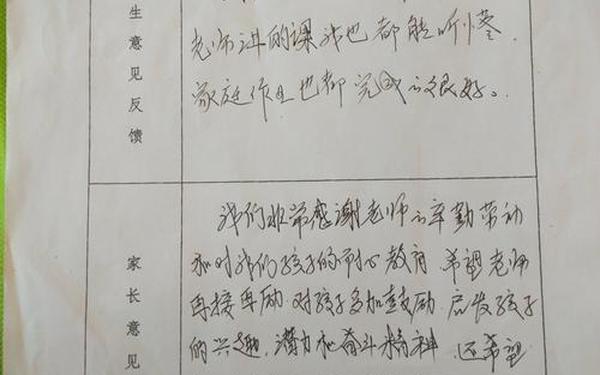 生意见反馈
老师讲的课我也都能听懂.
家庭作业也都完成的很好。
家长意见
我们非常感谢老师的辛勤劳动
和对我们孩子的耐心教育 希望老师
再接再励.对孩子多加鼓励.启发孩子
的兴趣.潜力和奋斗精神 还希望